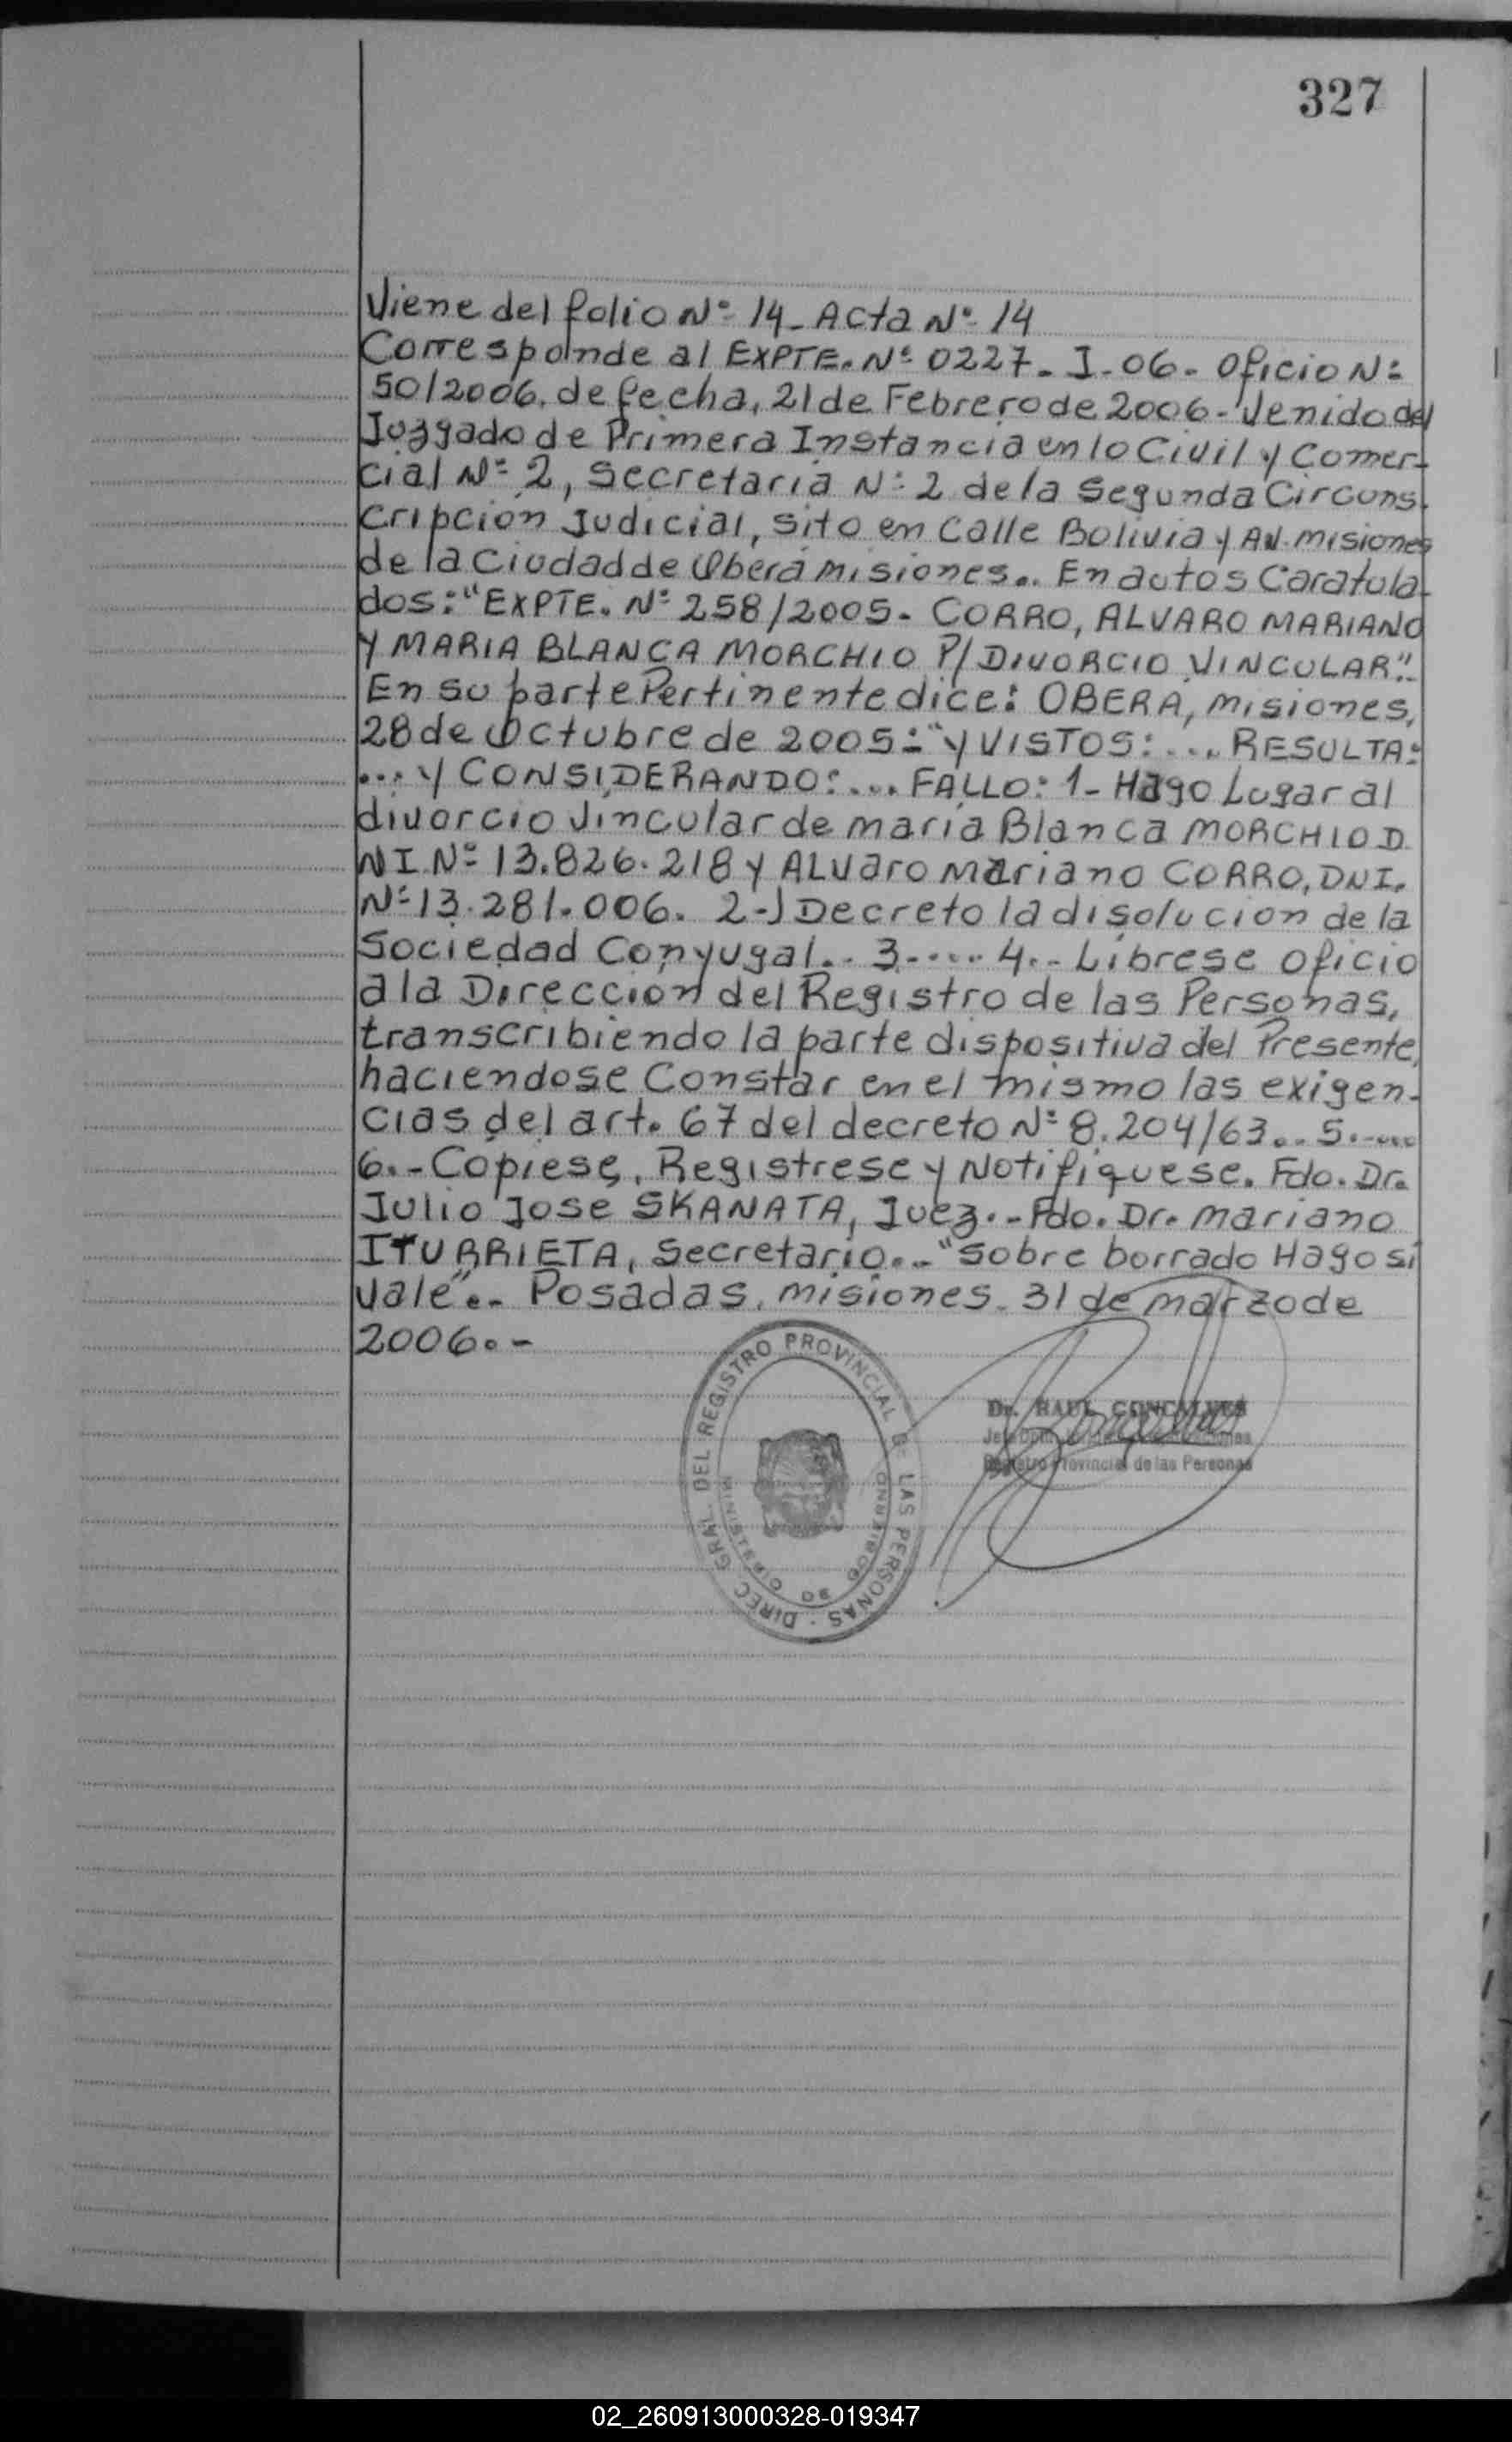 327
Viene del folio Nº 14- Acta Nº 14
Corresponde al EXPTE. Nº 0227- I-06- Oficio Nº
50/2006. de fecha, 21 de Febrero de 2006- Venido del
Juzgado de Primera Instancia en lo Civil y Comer-
cial Nº 2, Secretaria Nº 2 de la Segunda Circuns-
cripcion Judicial, sito en Calle Bolivia y Av. misiones
de la Ciudad de Oberá misiones.. En autos Caratula-
dos: "EXPTE. Nº 258/2005- CORRO, ALVARO MARIANO
Y MARIA BLANCA MORCHIO P/ DIVORCIO VINCULAR"..
En su parte Pertinente dice: OBERA, misiones,
28 de Octubre de 2005: "Y VISTOS: .... RESULTA:
... Y CONSIDERANDO: ... FALLO: 1- Hago Lugar al
divorcio Vincular de maria Blanca MORCHIO D.
NI. Nº 13.826.218 y ALVaro Mariano CORRO, DNI.
Nº 13.281.006. 2-) Decreto la disolucion de la
Sociedad Conyugal.. 3..... 4.- Líbrese oficio
a la Direccion del Registro de las Personas,
transcribiendo la parte dispositiva del Presente,
haciendose Constar en el mismo las exigen-
cias del art. 67 del decreto Nº 8.204/63.. 5.-....
6.- Copiese, Registrese y Notifiquese. Fdo. Dr.
Julio Jose SKANATA, Juez.- Fdo. Dr. mariano
ITURRIETA, Secretario..- "Sobre borrado Hago sí
vale".- Posadas, misiones. 31 de marzo de
2006.-
DIREC. GRAL. DEL REGISTRO PROVINCIAL DE LAS PERSONAS
MINISTERIO DE GOBIERNO
Dr. RAUL GONCALVES
Registro Provincial de las Personas
02_260913000328-019347